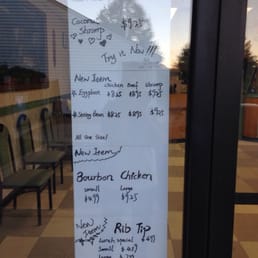 Coconut
Shrimp $9.25
Try it Now!!!
New Item
chicken Beef Shrimp
Eggplant
String Bean $8.25 $8.95
All One Size!
New Item
Bourbon Chicken
small large
$4.99 $9.25
New Item
Rib Tip
Lunch special
small
large